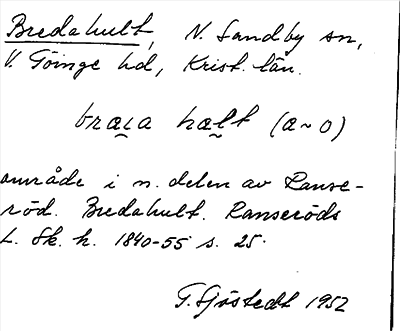 Bredahult, N. Sandby sn,
V. Göinge hd, Krist. län.
bræɪa hælt (a~o)
område i n. delen av Ranse-
röd. Bredahult. Ranseröds
L. Sk. h. 1840-55 s. 25.
G. Sjöstedt 1952